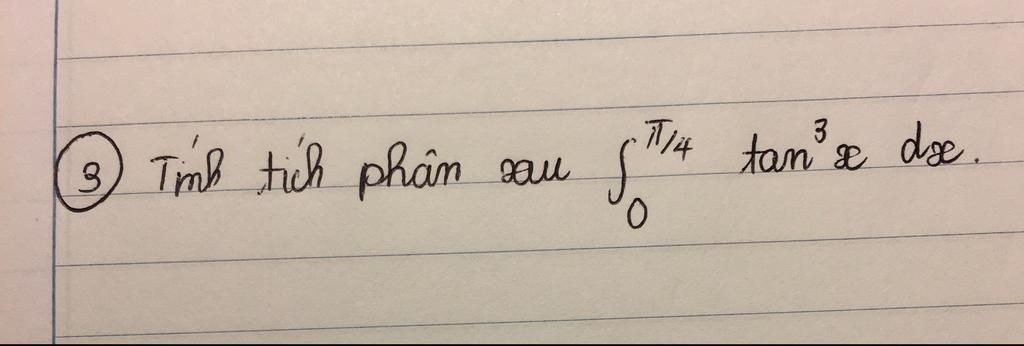 ③ Tính tích phân xau ∫₀^π/4 tan³x dx.